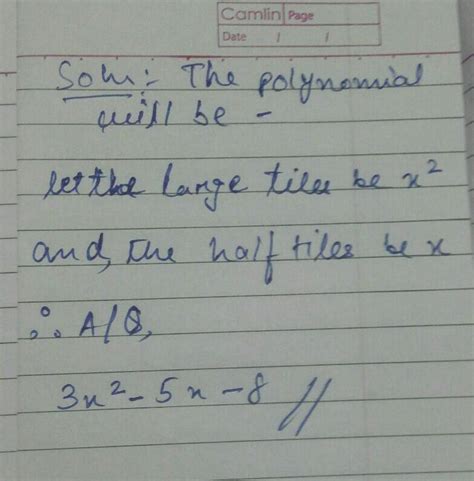 Camlin Page
Date / /
Soln:- The polynomial
will be -
let the large tiles be x²
and, the half tiles be x
∴ A/Q,
3x² - 5x - 8 //